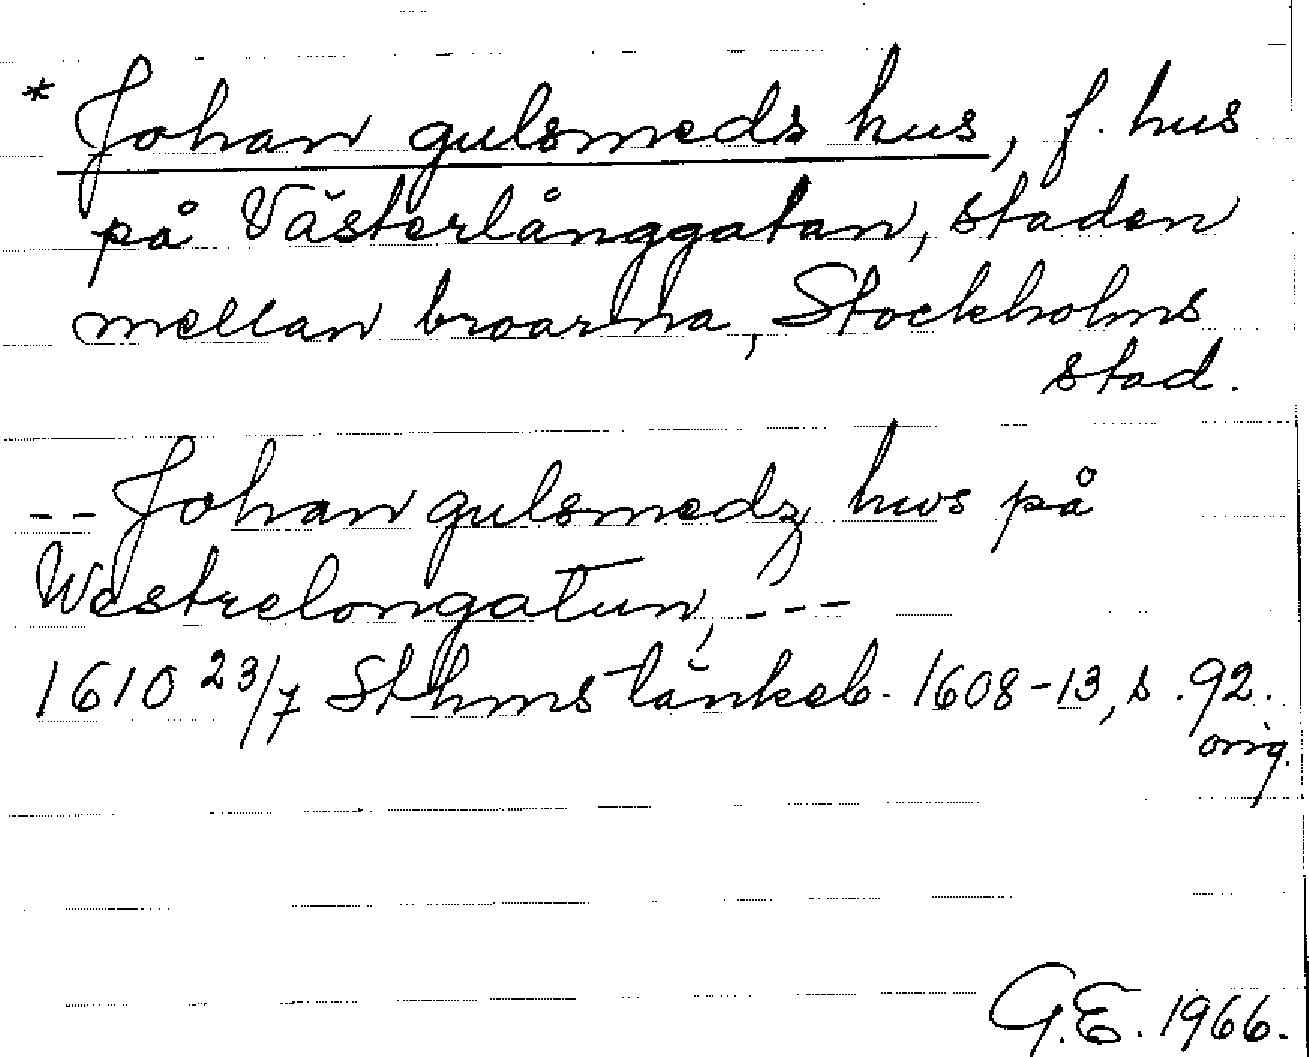 * Johan gulsmeds hus, f. hus
på Västerlånggatan, staden
mellan broarna, Stockholms
stad.
-- Johan gulsmedz hws på
Westrelongatun, ---
1610 23/7 Sthms tänkeb. 1608-13, s. 92.
orig.
G.E. 1966.